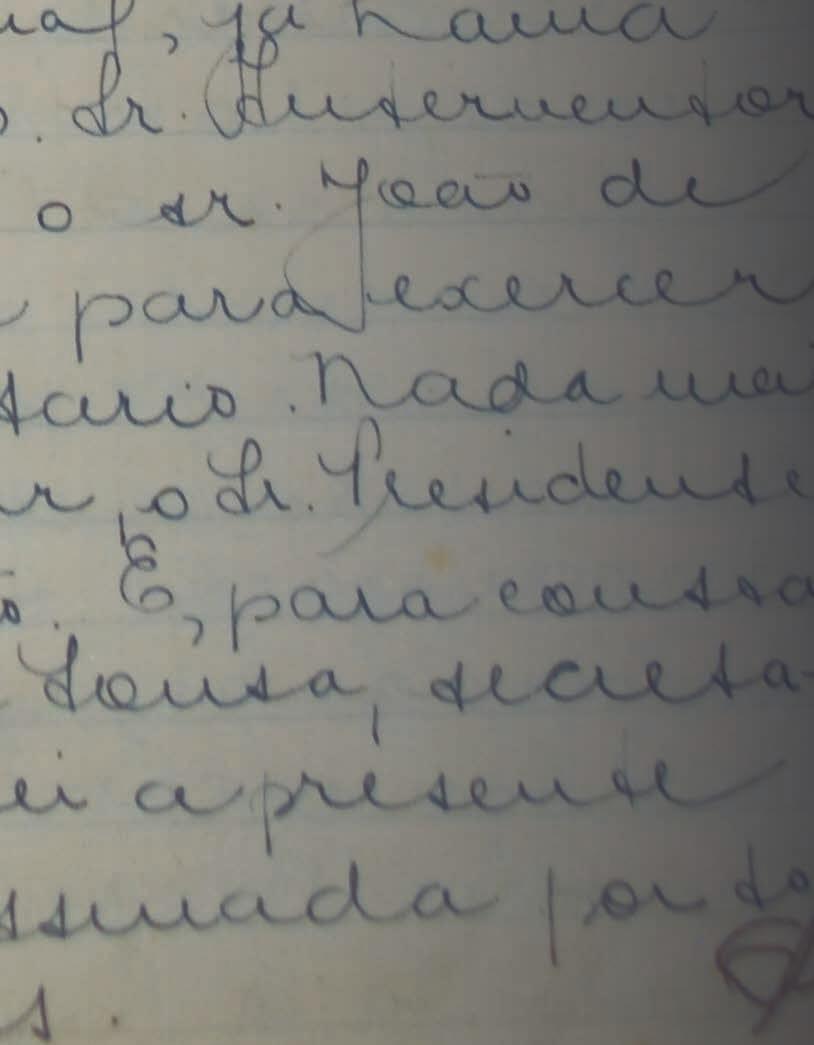 , já havia
. Sr. Interventor
o sr. João de
para exercer
tario. Nada mai
r, o Sr. Presidente
E, para consta
Sousa, secreta-
ei a presente
ssinada por to
s.